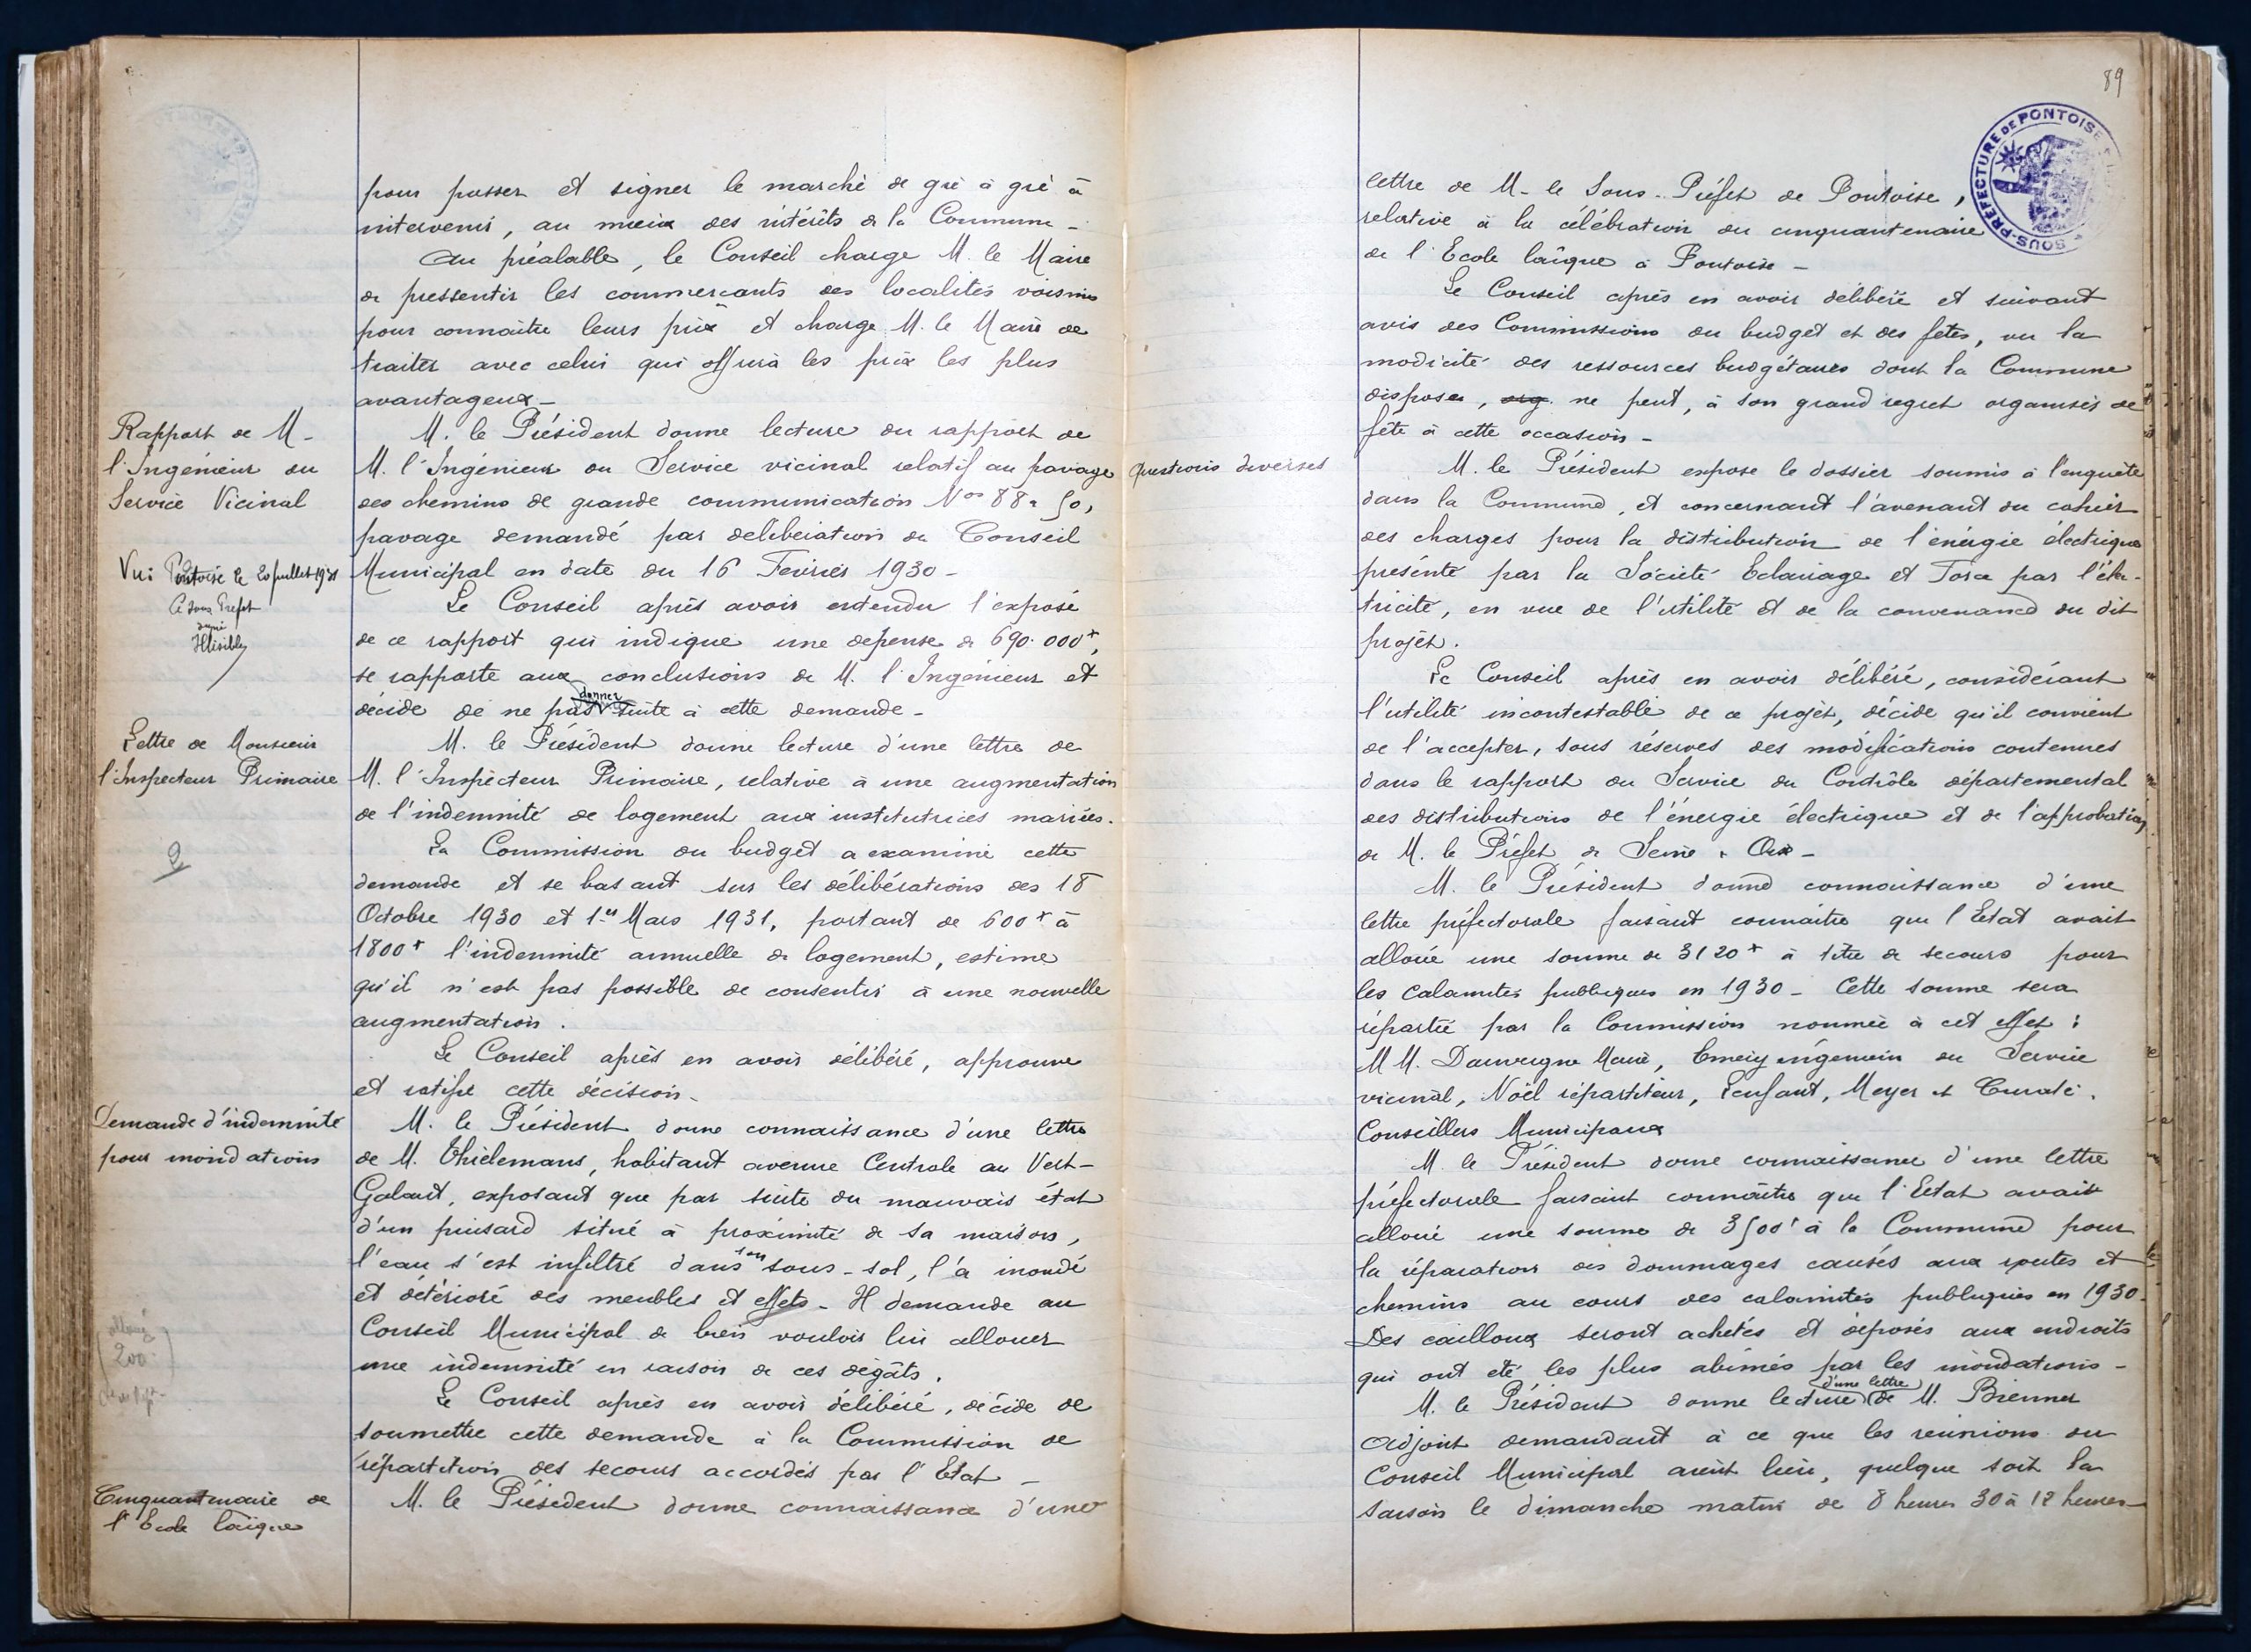 pour passer et signer le marché de gré à gré à
intervenir, au mieux des intérêts de la Commune -
Au préalable, le Conseil charge M. le Maire
de pressentir les commerçants des localités voisines
pour connaître leurs prix et charge M. le Maire de
traiter avec celui qui offrira les prix les plus
avantageux -
Rapport de M -
l'Ingénieur du
Service Vicinal
M. le Président donne lecture du rapport de
M. l'Ingénieur du Service vicinal relatif au pavage
des chemins de grande communication Nos 88 50,
pavage demandé par délibération du Conseil
Municipal en date du 16 Février 1930 -
Vu: Pontoise le 20 juillet 1931
le Sous Préfet
signé
Illisible
Le Conseil après avoir entendu l'exposé
de ce rapport qui indique une dépense de 690.000 f,
se rapporte aux conclusions de M. l'Ingénieur et
décide de ne pas donner suite à cette demande -
Lettre de Monsieur
l'Inspecteur Primaire
M. le Président donne lecture d'une lettre de
M. l'Inspecteur Primaire, relative à une augmentation
de l'indemnité de logement aux institutrices mariées.
La Commission du budget a examiné cette
demande et se basant sur les délibérations des 18
Octobre 1930 et 1er Mars 1931, portant de 600 f à
1800 f l'indemnité annuelle de logement, estime
qu'il n'est pas possible de consentir à une nouvelle
augmentation.
Le Conseil après en avoir délibéré, approuve
et ratifie cette décision -
Demande d'indemnité
pour inondations
M. le Président donne connaissance d'une lettre
de M. Thielemans, habitant avenue Centrale au Vert-
Galant, exposant que par suite du mauvais état
d'un puisard situé à proximité de sa maison,
l'eau s'est infiltré dans son sous-sol, l'a inondé
et détérioré des meubles et effets - Il demande au
Conseil Municipal de bien vouloir lui allouer
une indemnité en raison de ces dégâts.
alloué
200
Le Conseil après en avoir délibéré, décide de
soumettre cette demande à la Commission de
répartition des secours accordés par l'Etat -
Cinquantenaire de
l'Ecole laïque
M. le Président donne connaissance d'une
89
SOUS-PRÉFECTURE DE PONTOISE
lettre de M - le Sous-Préfet de Pontoise,
relative à la célébration du cinquantenaire
de l'Ecole laïque à Pontoise -
Le Conseil après en avoir délibéré et suivant
avis des Commissions du budget et des fêtes, vu la
modicité des ressources budgétaires dont la Commune
dispose, org. ne peut, à son grand regret organiser de
fête à cette occasion -
Questions diverses
M. le Président expose le dossier soumis à l'enquête
dans la Commune, et concernant l'avenant du cahier
des charges pour la distribution de l'énergie électrique
présenté par la Société Eclairage et Force par l'élec-
tricité, en vue de l'utilité et de la convenance du dit
projet.
Le Conseil après en avoir délibéré, considérant
l'utilité incontestable de ce projet, décide qu'il convient
de l'accepter, sous réserves des modifications contenues
dans le rapport du Service du Contrôle départemental
des distributions de l'énergie électrique et de l'approbation
de M. le Préfet de Seine & Oise -
M. le Président donne connaissance d'une
lettre préfectorale faisant connaître que l'Etat avait
alloué une somme de 3120 f à titre de secours pour
les calamités publiques en 1930 - Cette somme sera
répartie par la Commission nommée à cet effet :
MM. Dauvergne Maire, Emery ingénieur du Service
vicinal, Noël répartiteur, Lenfant, Meyer et Curaté.
Conseillers Municipaux
M. le Président donne connaissance d'une lettre
préfectorale faisant connaître que l'Etat avait
alloué une somme de 3500 f à la Commune pour
la réparation des dommages causés aux routes et
chemins au cours des calamités publiques en 1930.
Des cailloux seront achetés et déposés aux endroits
qui ont été les plus abimés par les inondations -
M. le Président donne lecture d'une lettre de M. Brenner
Adjoint demandant à ce que les réunions du
Conseil Municipal aient lieu, quelque soit la
saison le dimanche matin de 8 heures 30 à 12 heures